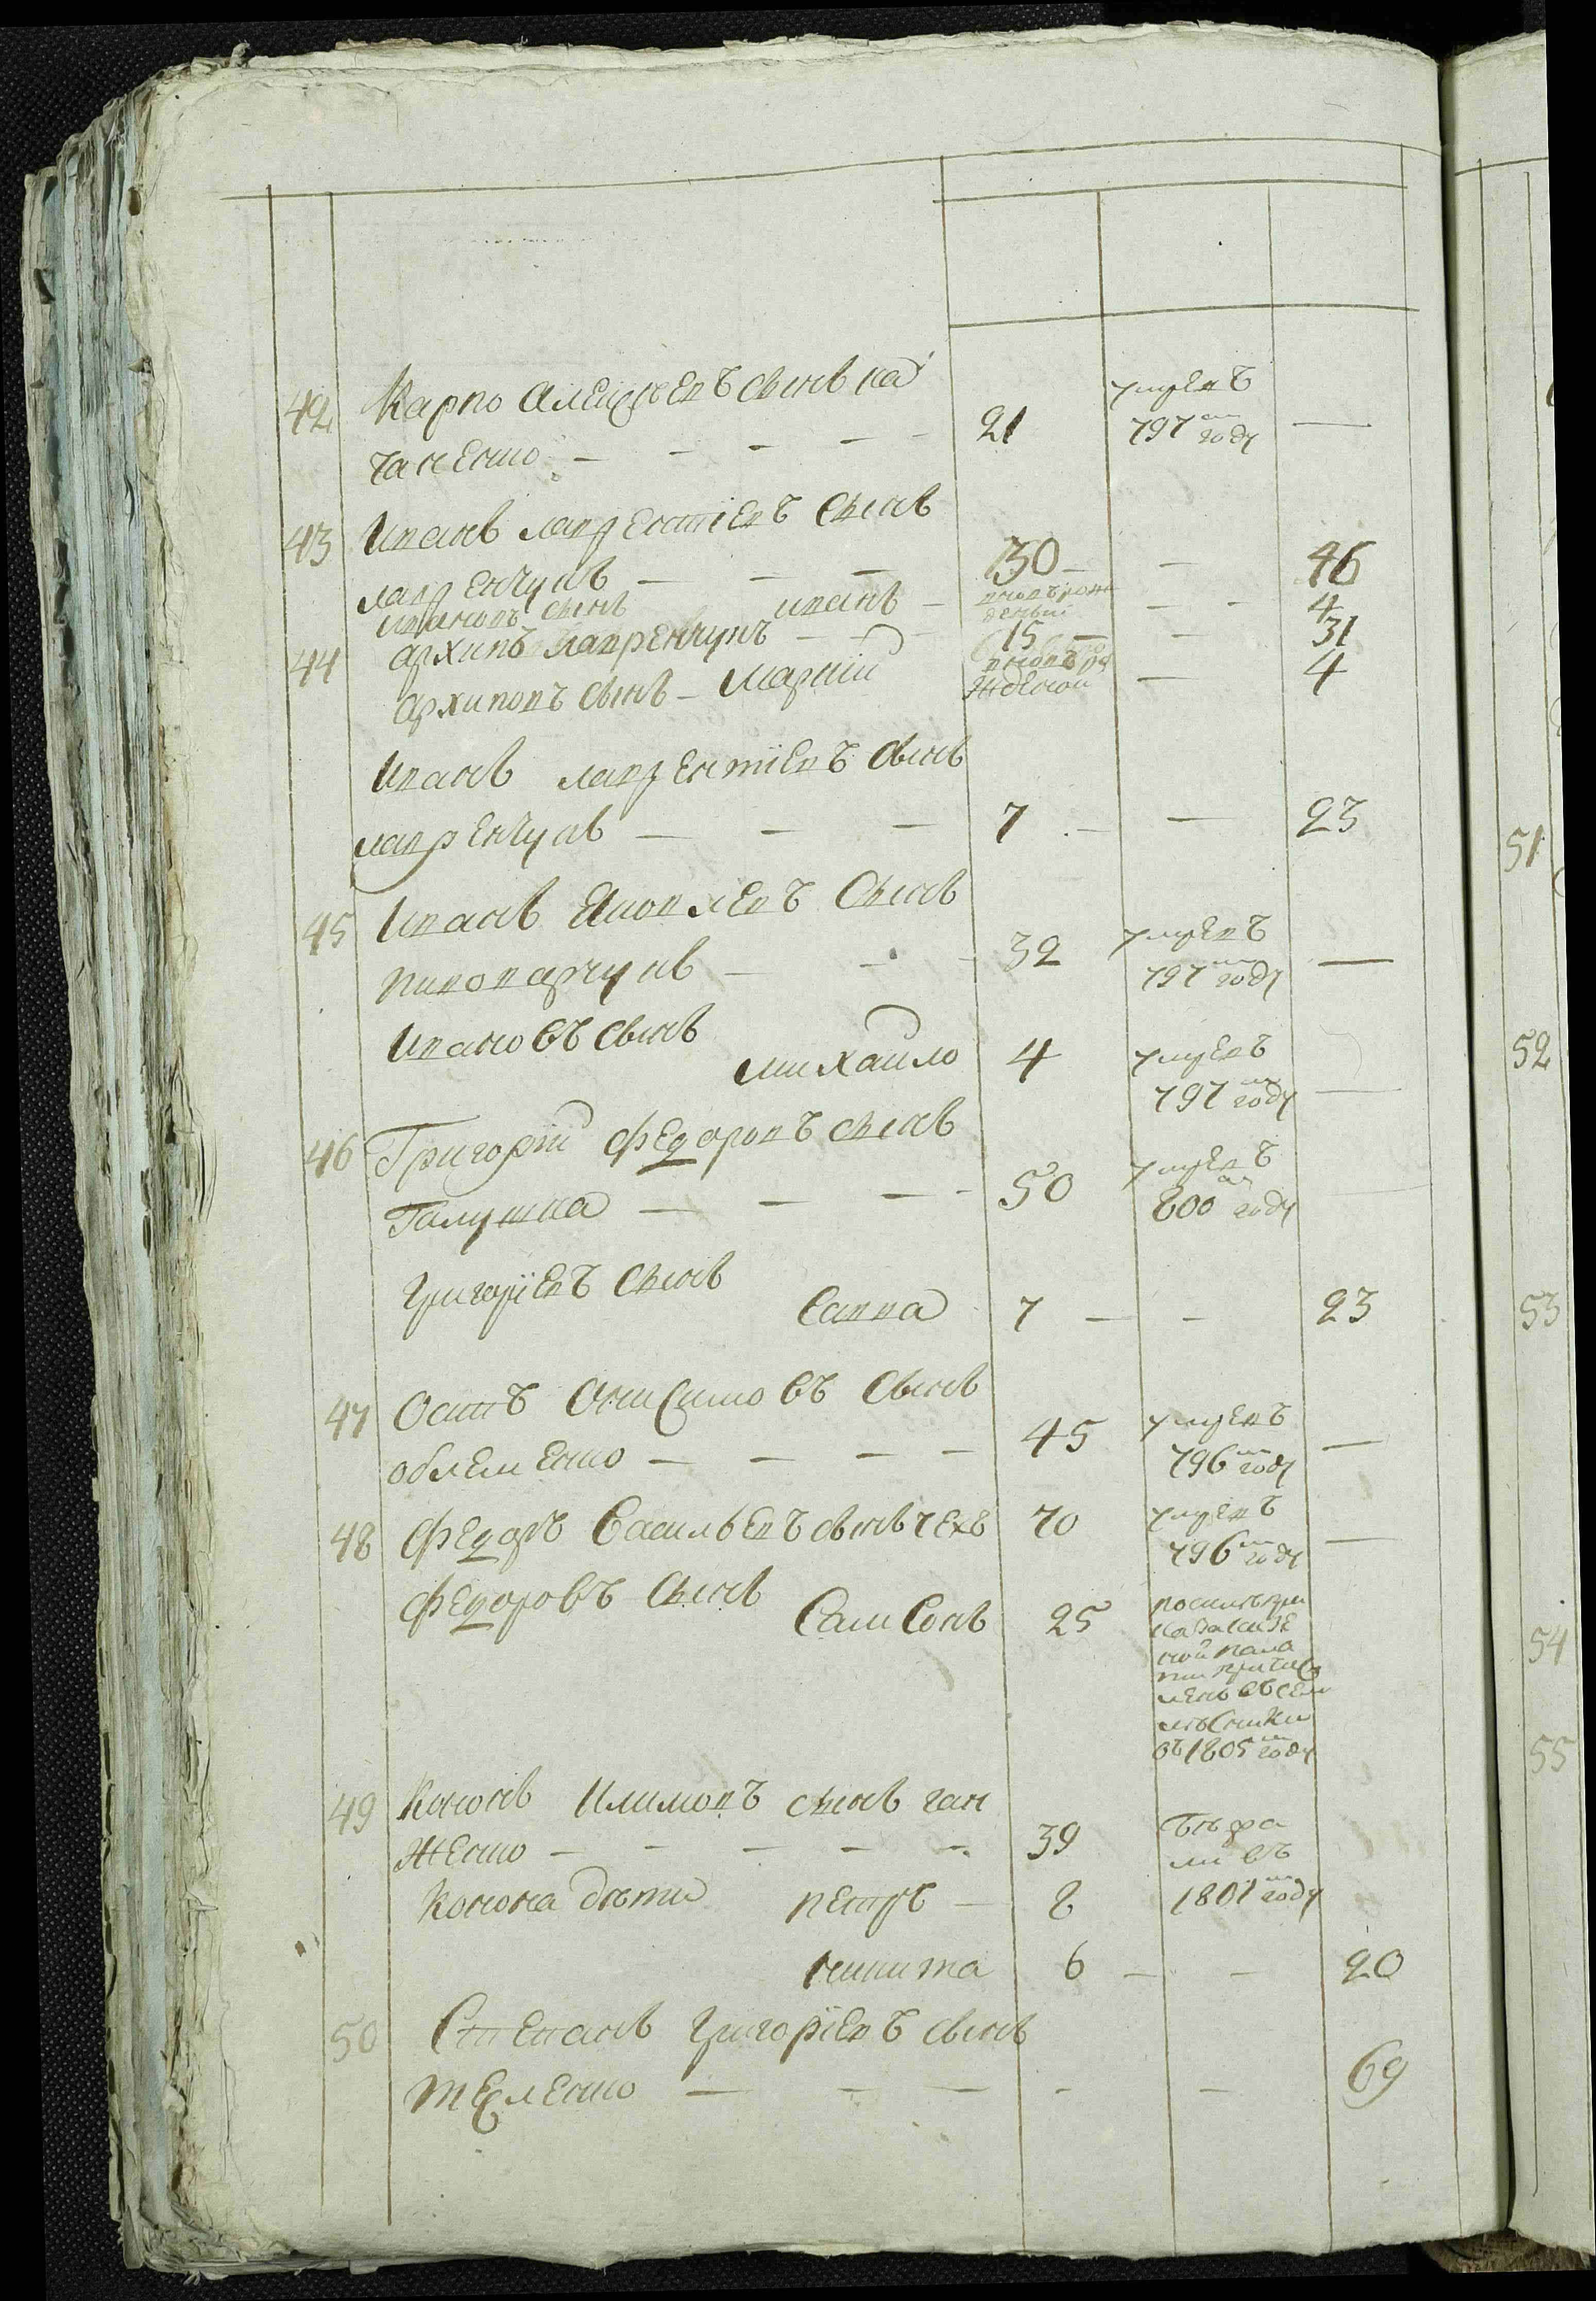 42 Карпо Алексѣевъ сынъ ка
чаненко 21 умревъ 797м году —
43 Иванъ лаврентіевъ сынъ
лавренчукъ — 30 — — 46
ивановъ сынъ иванъ — вновь рож
денный — — 4
44 архипъ лавренчукъ — 15 — — 31
архиповъ сынъ — Маркій вновь ро
жденой — 4
Иванъ лаврентіевъ сынъ
лавренчукъ — 7 — — 23
45 Иванъ Яковлевъ сынъ
пивоварчукъ — 32 умревъ 797м году —
Ивановъ сынъ
михайло 4 умревъ 797м году —
46 Григорій федоровъ сынъ
Галушка — 50 умревъ 800м году
Григоріевъ сынъ
Савва 7 — — 23
47 Остапъ Онисимовъ сынъ
обleменко — 45 умревъ 796м году —
48 федоръ Васильевъ сынъ чехъ 70 умревъ 796м году —
федоровъ сынъ
Самсонъ 25
казъ казе
ной пала
ти причис
ленъ въ
въ 1805м году
49 Кононъ Климовъ сынъ ган
женко — 39 бѣжа
ли въ
Конона дѣти петръ — 8 1801м году
никита 6 — — 20
50 Степанъ Григоріевъ сынъ
теленко — — — 69
51
52
53
54
55